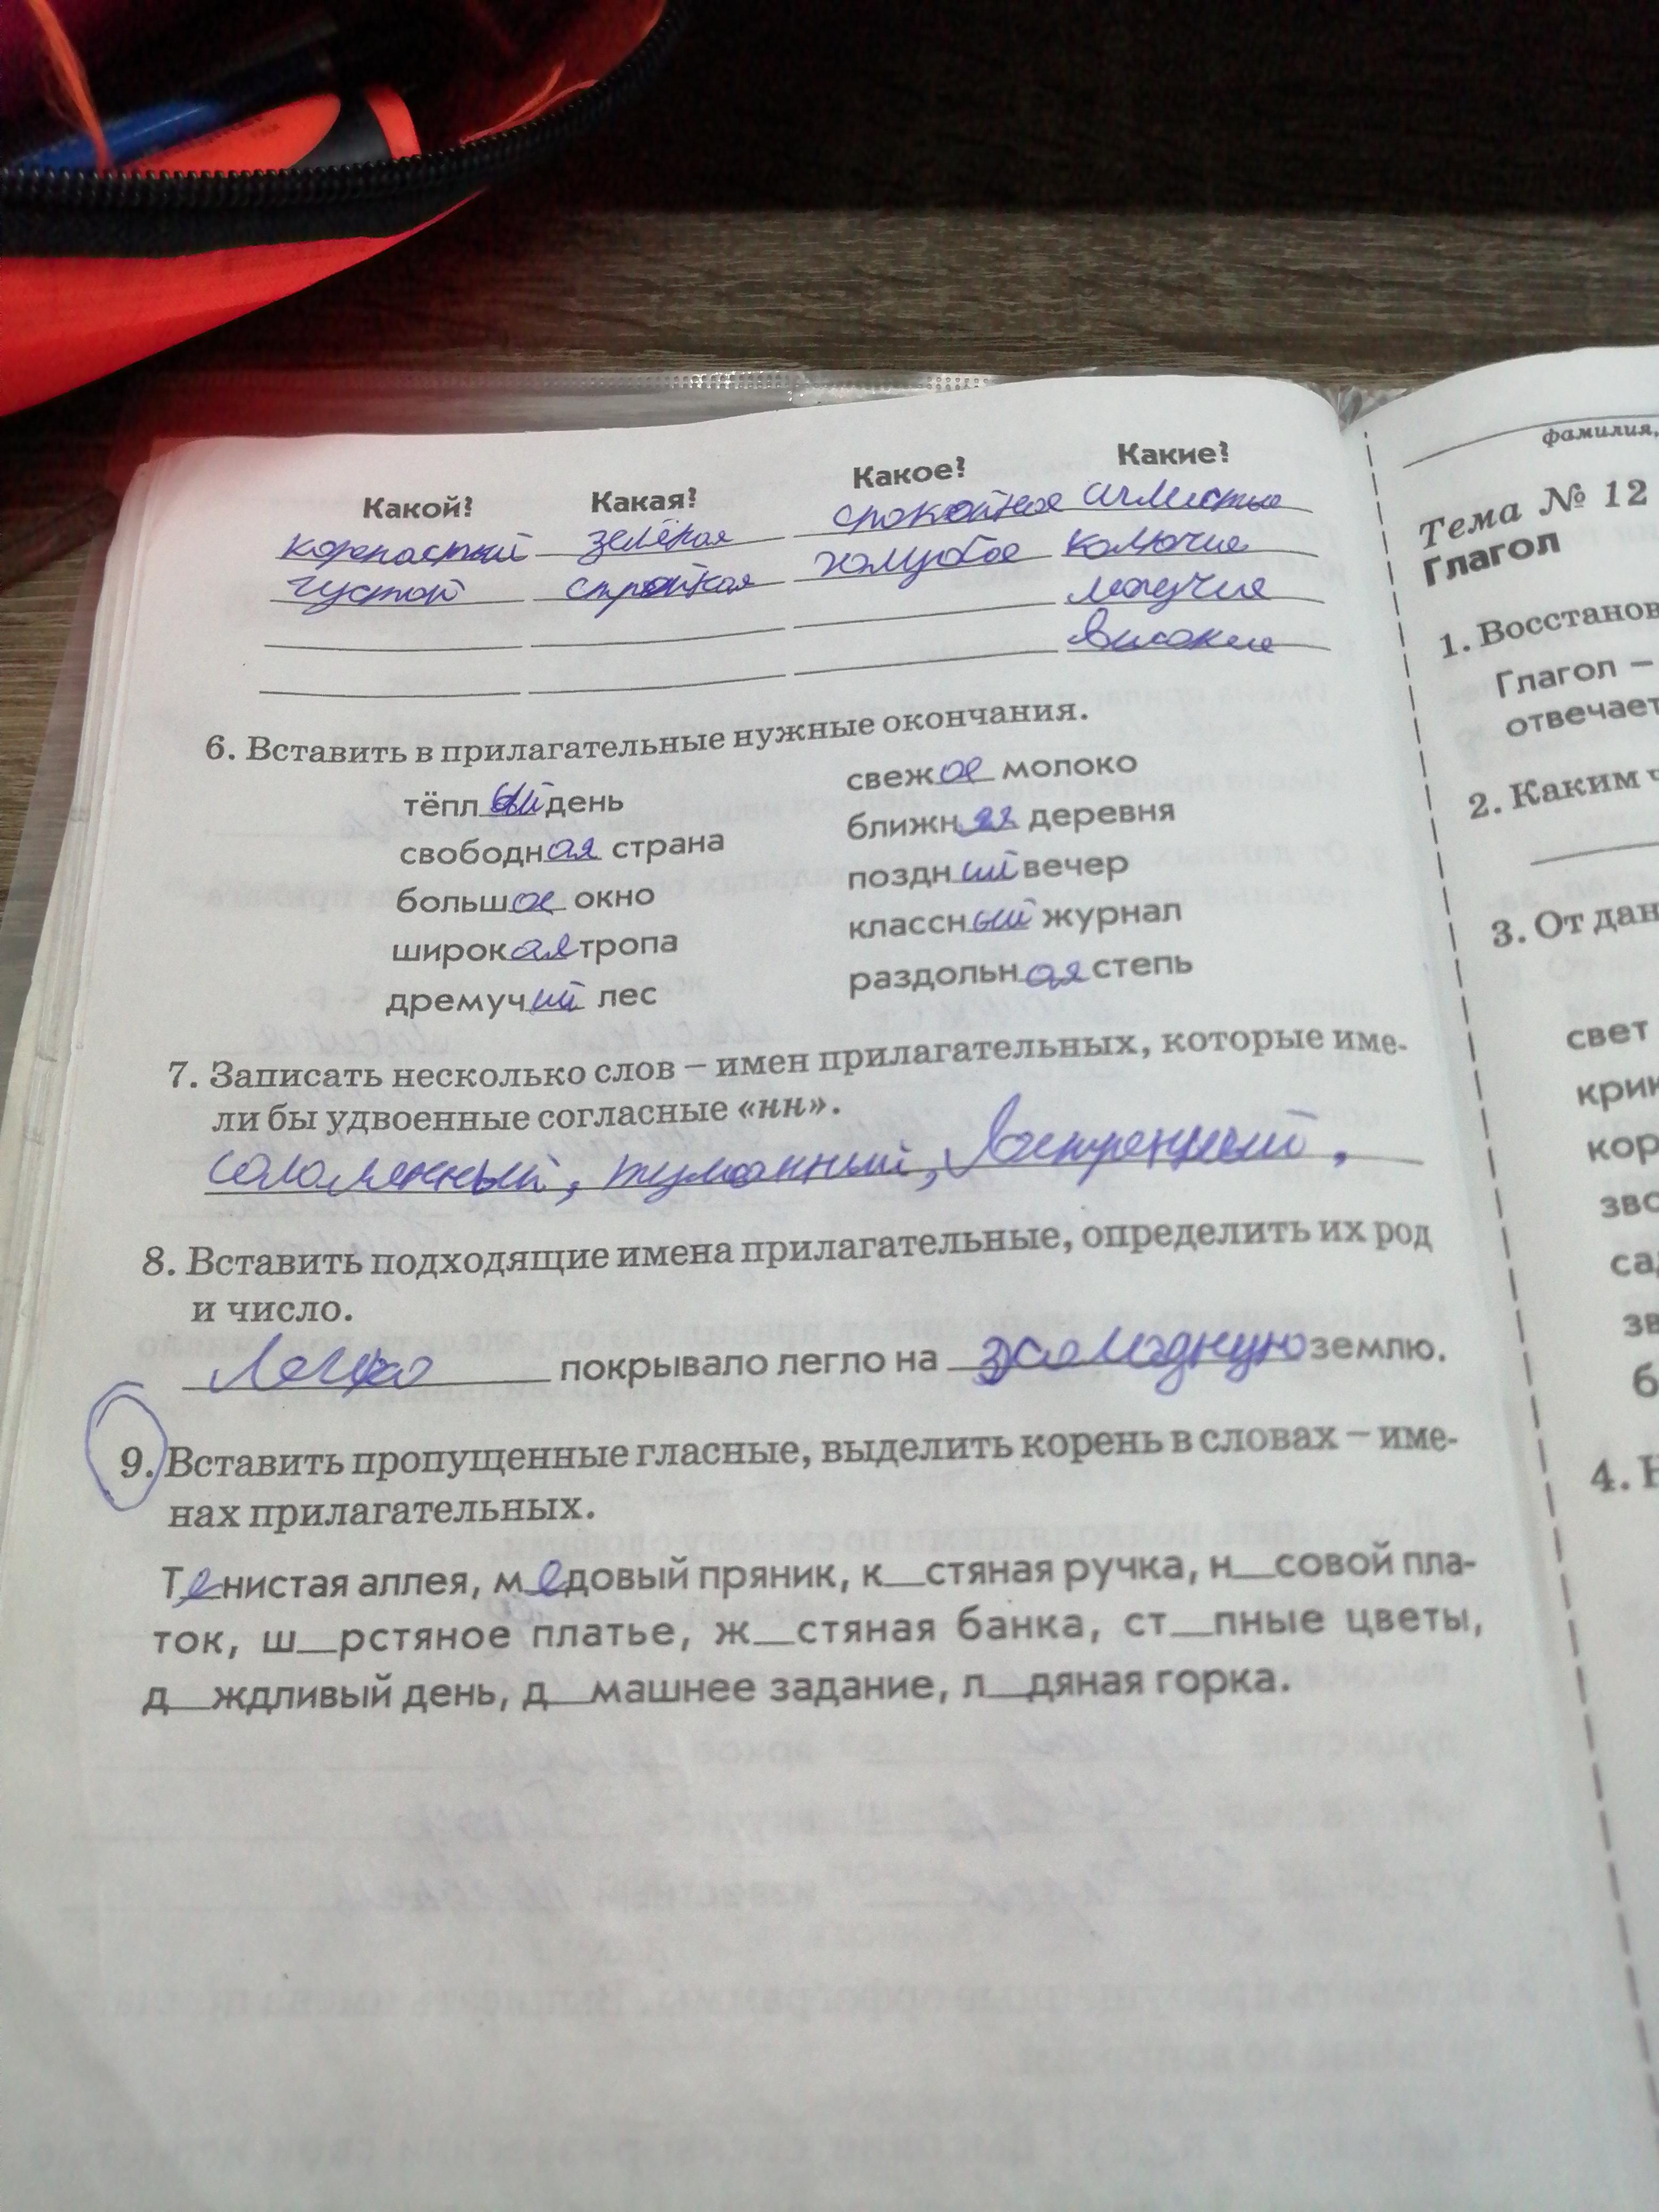 Какой? Какая? Какое? Какие?
коренастый зелёная спокойное
густой стройная голубое колючие
могучие
высокие
6. Вставить в прилагательные нужные окончания.
тёплый день
свободная страна
большое окно
широкая тропа
дремучий лес
свежое молоко
ближняя деревня
поздний вечер
классный журнал
раздольная степь
7. Записать несколько слов – имен прилагательных, которые име-
ли бы удвоенные согласные «нн».
соломенный, туманный,
8. Вставить подходящие имена прилагательные, определить их род
и число.
покрывало легло на холодную землю.
9. Вставить пропущенные гласные, выделить корень в словах – име-
нах прилагательных.
Тенистая аллея, медовый пряник, к__стяная ручка, н__совой пла-
ток, ш__рстяное платье, ж__стяная банка, ст__пные цветы,
д__ждливый день, д__машнее задание, л__дяная горка.
фамилия,
Тема № 12
Глагол
1. Восстанов
Глагол –
отвечает
2. Каким ч
3. От дан
свет
крик
кор
зво
са
зв
б
4. Н